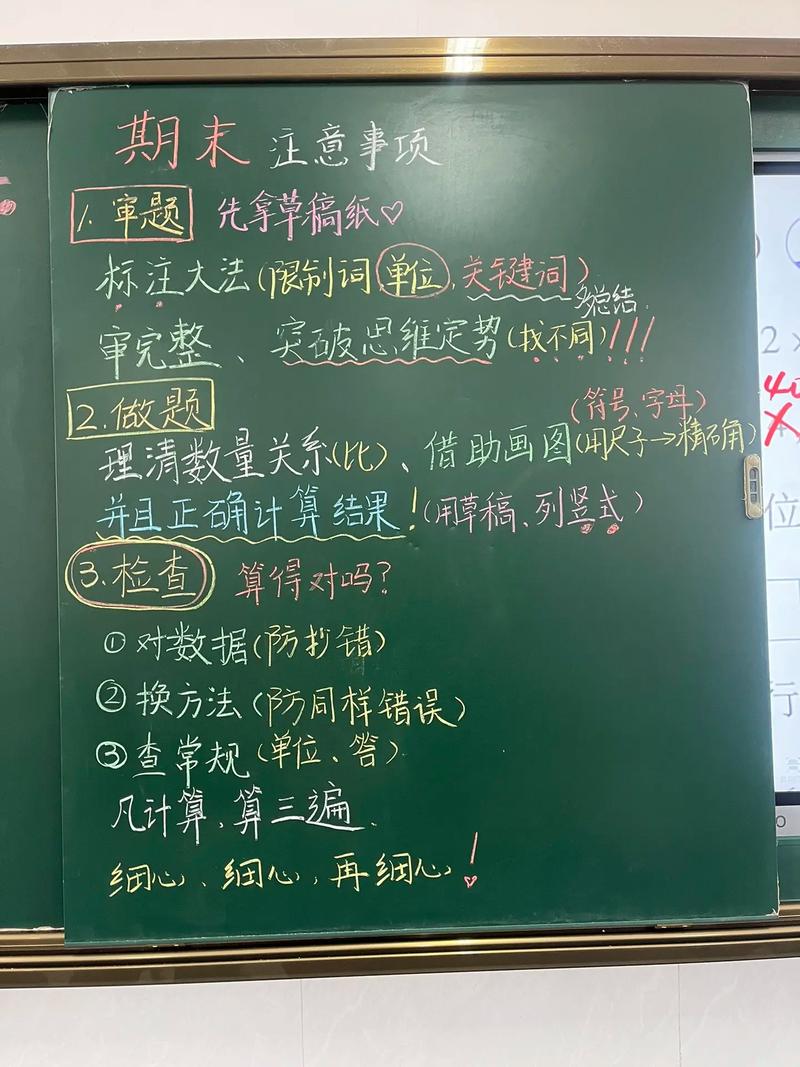 期末 注意事项
1.审题 先拿草稿纸♡
标注大法(限制词,单位,关键词)
多总结.
审完整、突破思维定势(找不同)!!!
2.做题
(符号、字母)
理清数量关系(比)、借助画图(用尺子→精确)
并且正确计算结果!(用草稿、列竖式)
3.检查 算得对吗?
①对数据(防抄错)
②换方法(防同样错误)
③查常规(单位、答)
凡计算,算三遍.
细心、细心,再细心!
2×
40
×
位
行